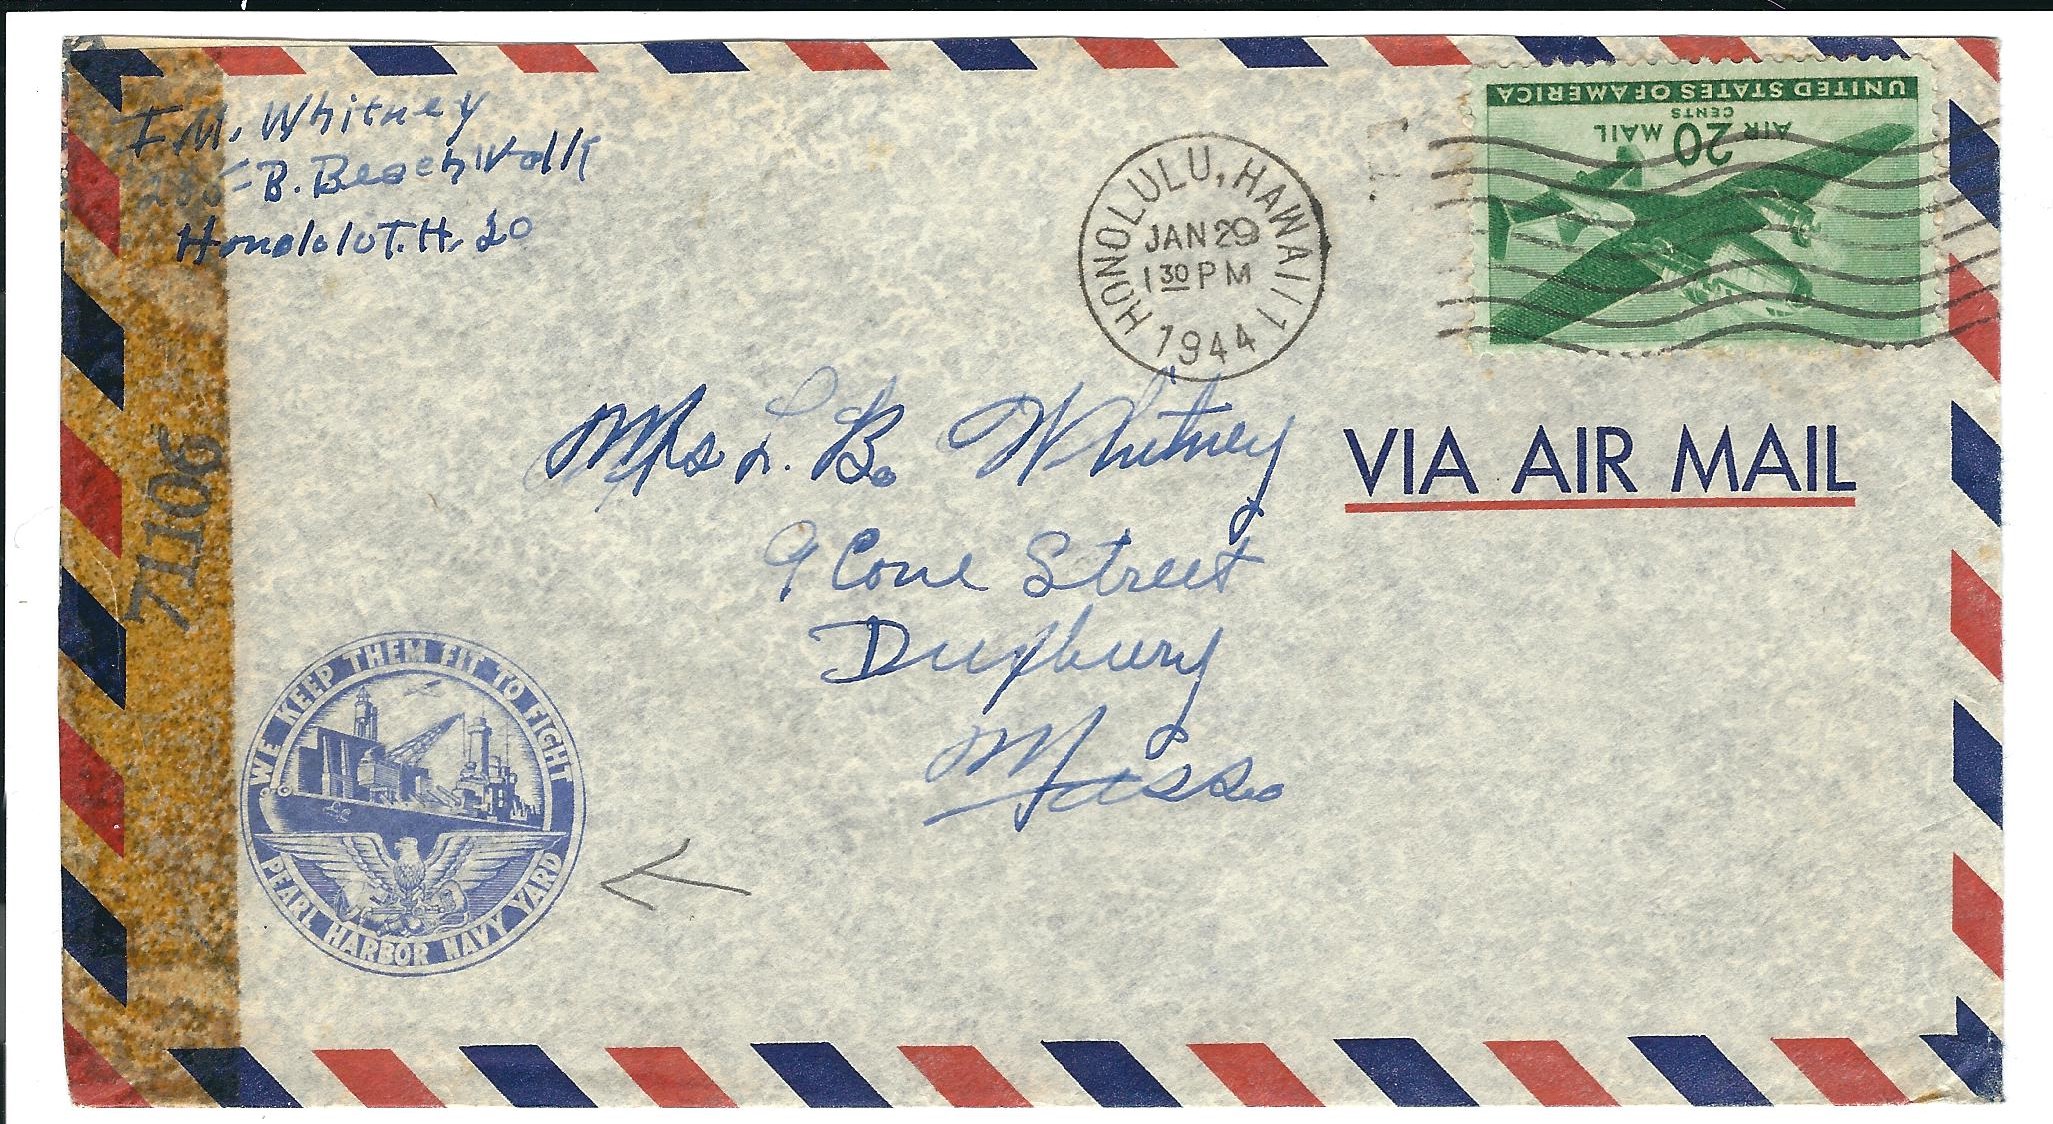 I M. Whitney
285-B. Beachwalk
Honolulu T.H. 20
HONOLULU, HAWAII
JAN 29
1 30 PM
1944
UNITED STATES OF AMERICA
CENTS
AIR 20 MAIL
Mrs L. B. Whitney
9 Cove Street
Duxbury
Mass.
VIA AIR MAIL
71106
WE KEEP THEM FIT TO FIGHT
PEARL HARBOR NAVY YARD